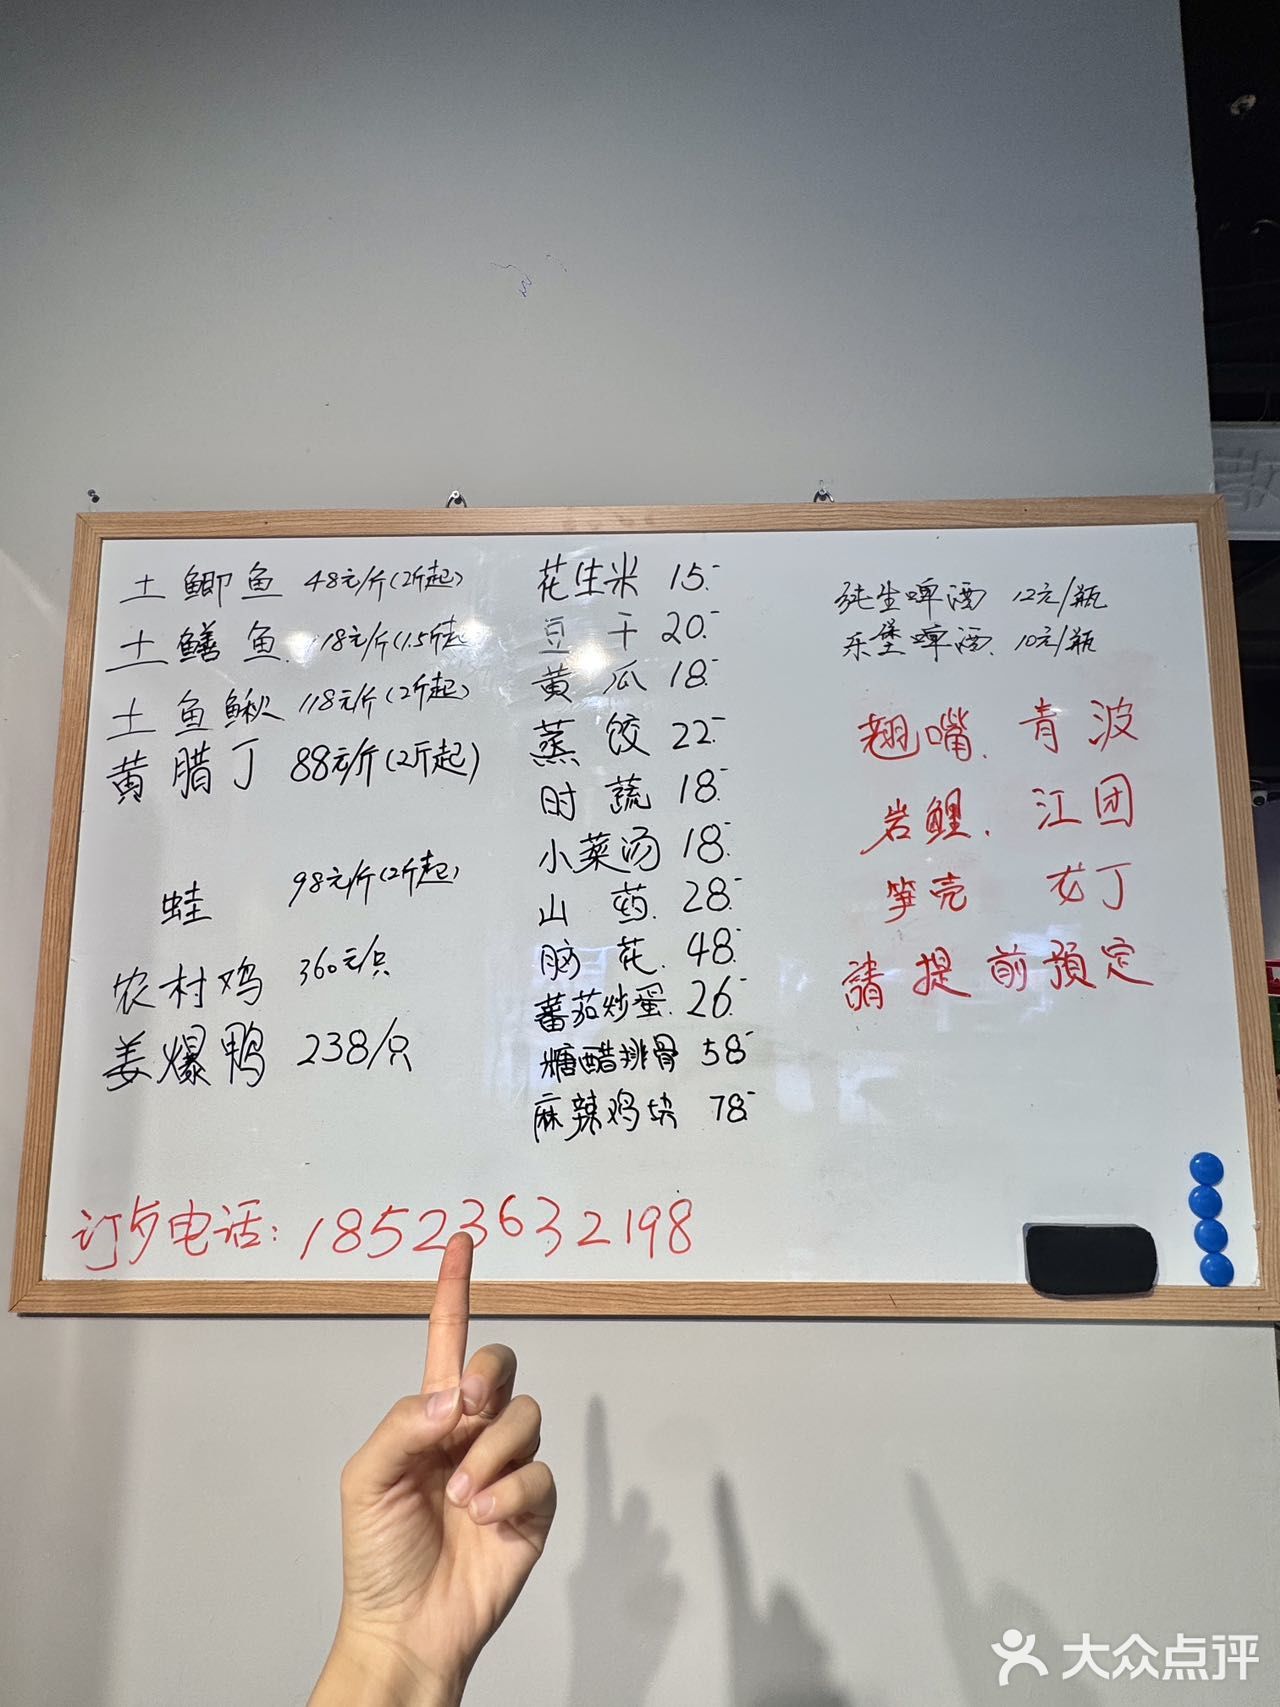 土鲫鱼 48元/斤(2斤起)
土鳝鱼 118元/斤(1.5斤起
土鱼鳅 118元/斤(2斤起)
黄腊丁 88元/斤(2斤起)
蛙 98元/斤(2斤起)
农村鸡 360元/只
姜爆鸭 238/只
花生米 15.-
豆干 20.-
黄瓜 18.-
蒸饺 22.-
时蔬 18.-
小菜汤 18.-
山药. 28.-
脑花. 48.-
蕃茄炒蛋. 26.-
糖醋排骨 58.-
麻辣鸡块 78.-
纯生啤酒 12元/瓶
乐堡啤酒. 10元/瓶
翘嘴. 青波
岩鲤. 江团
笋壳 丁
請提前預定
订夕电话: 18523632198
大众点评